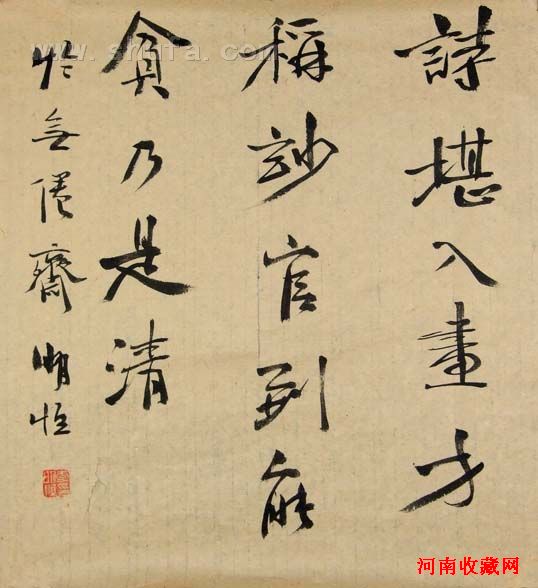 詩堪入畫才
稱妙官到能
貧乃是清
於無倦齋 順恒
www.shufa.com
河南收藏网